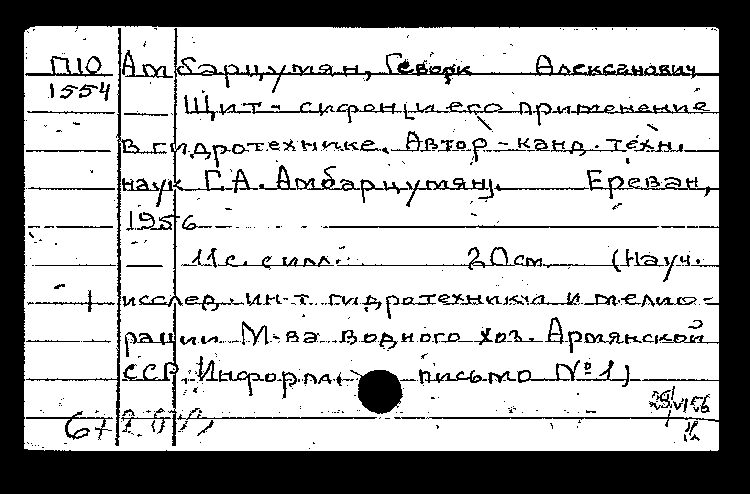 П10 Амбарцумян, Геворк Алексанович
1554 — Щит-сифон и его применение
в гидротехнике. Автор - канд. техн.
наук Г.А. Амбарцумян. Ереван,
1956
— 11 с. с илл. 20 см (Науч.
исслед. ин-т гидротехники и мелио-
рации М-ва водного хоз. Армянской
ССР. Информ. письмо № 1)